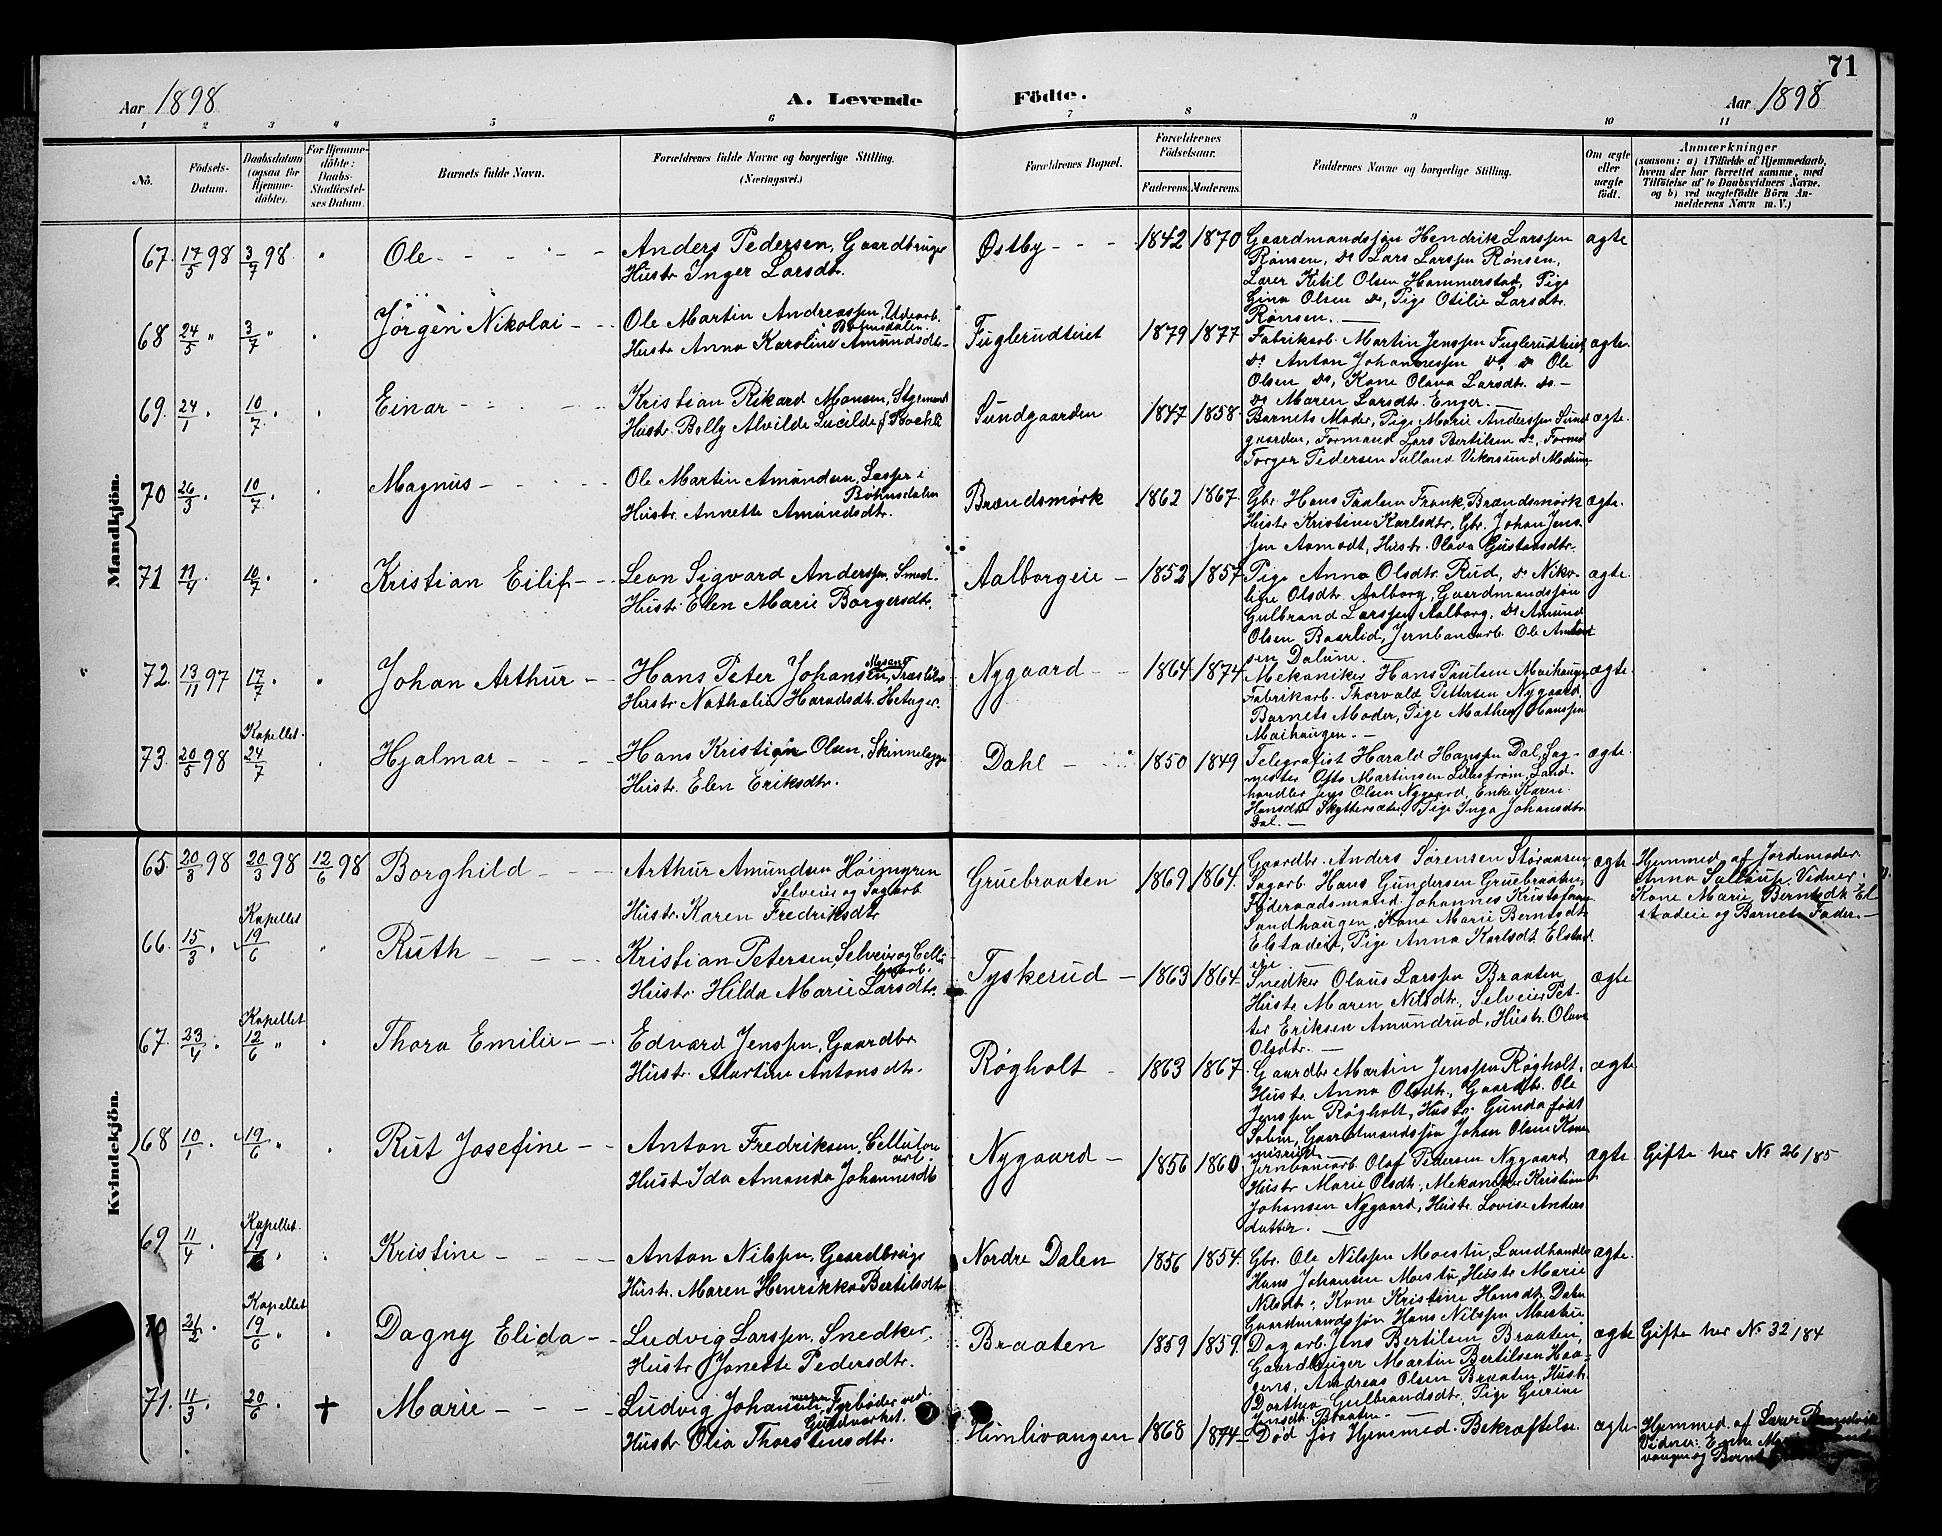 71
Aar 1898
A. Levende Födte.
Aar 1898
1 2 3 4 5 6 7 8 9 10 11
No.
Födsels-Datum.
Daabsdatum (ogsaa for Hjemmedöbte).
For Hjemmedöbte: Daabs-Stadfæstelses Datum.
Barnets fulde Navn.
Forældrenes fulde Navne og borgerlige Stilling. (Næringsvei.)
Forældrenes Bopæl.
Forældrenes Födselsaar.
Faderens. Moderens.
Faddernes Navne og borgerlige Stilling.
Om ægte eller uægte födt.
Anmærkninger
(saasom: a) i Tilfælde af Hjemmedaab,
hvem der har forrettet samme, med
Tilföielse af to Daabsvidners Navne.
og b) ved uægtefödte Börn An-
melderens Navn m. V.)
Mandkjön.
67. 17/5 98 3/7 98 " Ole
Anders Pedersen, Gaardbruger
Hustr. Inger Larsdtr.
Østby 1842 1870
Gaardmandssøn Hendrik Larssen
Rønsen, do Lars Larssen Rønsen,
Lærer Ketil Olsen Hammerstad, Pige
Gina Olsen do, Pige Otilie Larsdtr.
Rønsen.
ægte
68 24/5 " 3/7 " Jörgen Nikolai
Ole Martin Andreassen, Uddearb.
Bøhnsdalen.
Hustr. Anna Karoline Amundsdtr
Fuglerudteiet 1879 1877
Fabrikarb. Martin Jenssen Fuglerudteiet
do Anton Johannessen do, do Ole
Olsen do, Kone Olava Larsdtr. do
do Maren Larsdtr. Enger.
ægte.
69. 24/1 " 10/7 " Einar
Kristian Rikard Monsen, Styrmand
Hustr. Bolly Alvilde Lucilde f. Bochli
Sundgaarden 1847 1858.
Barnets Moder, Pige Marie Anderssen Sund
gaarden, Formand Lars Bertilsen do, Formd
Torger Pedersen Sulland Vikersund Modum
ægte.
70 26/3 " 10/7 " Magnus
Ole Martin Amundsen, Læsser i
Bøhnsdalen
Hustr. Annette Amundsdtr.
Brændsmørk 1862 1867
Gbr. Hans Paulsen Frank, Brændsmørk
Hustr Kristine Karlsdtr, Gbr. Johan Jens
sen Aamodt, Hustr. Olava Gustavsdtr.
ægte.
71 11/4 " 10/7 " Kristian Eilif
Leon Sigvard Anderssen, Smed.
Hustr. Elen Marie Borgersdtr.
Aalborgeie 1852 1857
Pige Anna Olsdtr. Rud, do Niko-
line Olsdtr. Aalborg, Gaardmandssøn
Gulbrand Larssen Aalborg, do Amund
Olsen Baarlid, Jernbanearb. Ole
sen Dalume.
ægte.
72. 13/11 97 17/7 " Johan Arthur
Hans Peter Johansen,
Hustr. Nathalie
Nygaard 1864 1874
Mekaniker Hans Paulsen Maihaugen
Fabrikarb. Thorvald Pettersen Nygaard,
Barnets Moder, Pige Mathea Hanssen
Maihaugen.
ægte.
73. 20/5 98 Kapellet 24/7 Hjalmar
Hans Kristian Olsen, Skinnelægger
Hustr. Elen Eriksdtr.
Dahl 1850 1849
Telegrafist Harald Hanssen Dal, Sag-
mester Otto Martinsen Lillestrøm, Land-
handler Jens Olsen Nygaard, Enke Karen
Hansdtr Skyttersæter, Pige Inga Johansdtr
Dal.
ægte.
Kvindekjön.
65. 20/3 98 20/3 98 12/6 98 Borghild
Arthur Amundsen Høijmyren
Selveier og Sagarb
Hustr. Karen Fredriksdtr
Gruebraaten 1869 1864.
Gaardbr. Anders Sørensen
Sagarb. Hans Gundersen Gruebraaten,
Føderaadsmand Johannes Kristofersen
Sandhaugen, Kone Marie Berntsdtr
Elstadeie, Pige Anna Karlsdtr. Elstad
eie
ægte
Hjemmed. af Jordemoder
Anna Vidner:
Kone Marie Berntsdtr El
stadeie og Barnets Fader.
66. 15/3 " Kapellet 19/6 " Ruth
Kristian Petersen, Selveier og Cellu
losearb.
Hustr. Hilda Marie Larsdtr.
Tyskerud 1863 1864
Snedker Olaus Larssen Braaten,
Hustr. Maren Nilsdtr, Selveier Pet-
ter Eriksen Amundrud, Hustr. Olava
Olsdtr.
ægte
67. 23/4 " Kapellet 12/6 " Thora Emilie
Edvard Jenssen, Gaardbr
Hustr. Martine Antonsdtr.
Røgholt 1863 1867.
Gaardbr Martin Jenssen Røgholt,
Hustr. Anna Olsdtr, Gaardbr. Ole
Jenssen Røgholt, Hustr. Gunda født
Gaardmandssøn Johan Olsen Kom
misrud
ægte
68 10/1 " 19/6 " Rut Josefine
Anton Fredriksen, Cellulose
arb.
Hustr Ida Amanda Johannesdtr
Nygaard 1856 1860
Jernbanearb. Olaf Pedersen Nygaard
Hustr Marie Olsdtr, Mekaniker Kristian
Johansen Nygaard, Hustr. Lovise Anders
datter.
ægte
Gifte her No 26/85
69 11/4 " Kapellet. 19/6 " Kristine
Anton Nilssen, Gaardbruger
Hustr. Maren Henrikka Bertilsdtr
Nordre Dalen 1856 1854.
Gbr. Ole Nilssen Moestu, Landhandler
Hans Johansen Moestu, Hustr Marie
Nilsdtr, Kone Kristine Hansdtr Dalen
Gaardmandssøn Hans Nilssen Moestue
ægte.
70 21/2 " Kapellet 19/6 " Dagny Elida
Ludvig Larssen, Snedker.
Hustr Jonette Pedersdtr.
Braaten 1859 1859
Dagarb. Jens Bertilsen Braaten,
Gaardbruger Martin Bertilsen Haa-
gens, Andreas Olsen Braaten, Hustr
Dorthea Gulbrandsdtr, Pige Gurine
Jensdtr. Braaten
ægte
Gifte her No 32/84
71. 11/3 " 20/6 " + Marie
Ludvig Johansen, Fyrbøder ved
Guldverket.
Hustr Olia Thorstensdtr.
Himlivangen 1868 1874
Død før Hjemmed. Bekræftelse
ægte
Hjemmed. af Lærer
Vidner: Enke
vangen og